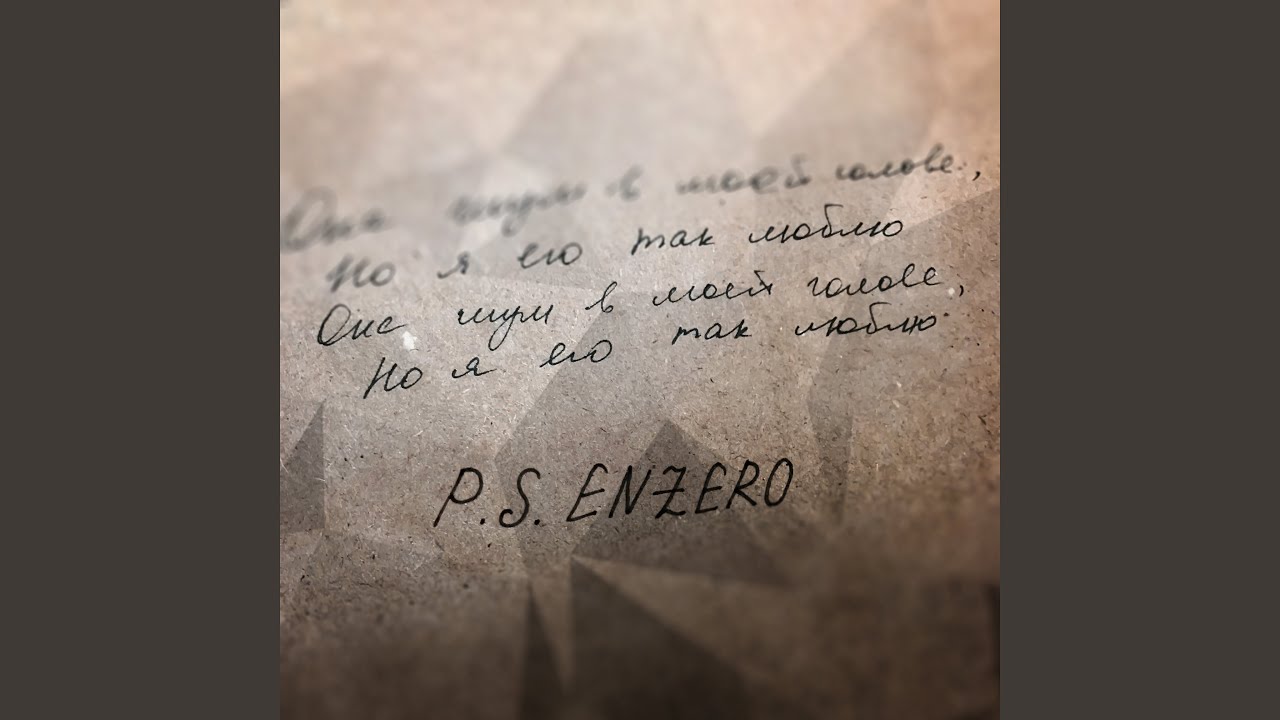 Она шум в моей голове,
Но я его так люблю
Она шум в моей голове,
Но я его так люблю
P.S. ENZERO